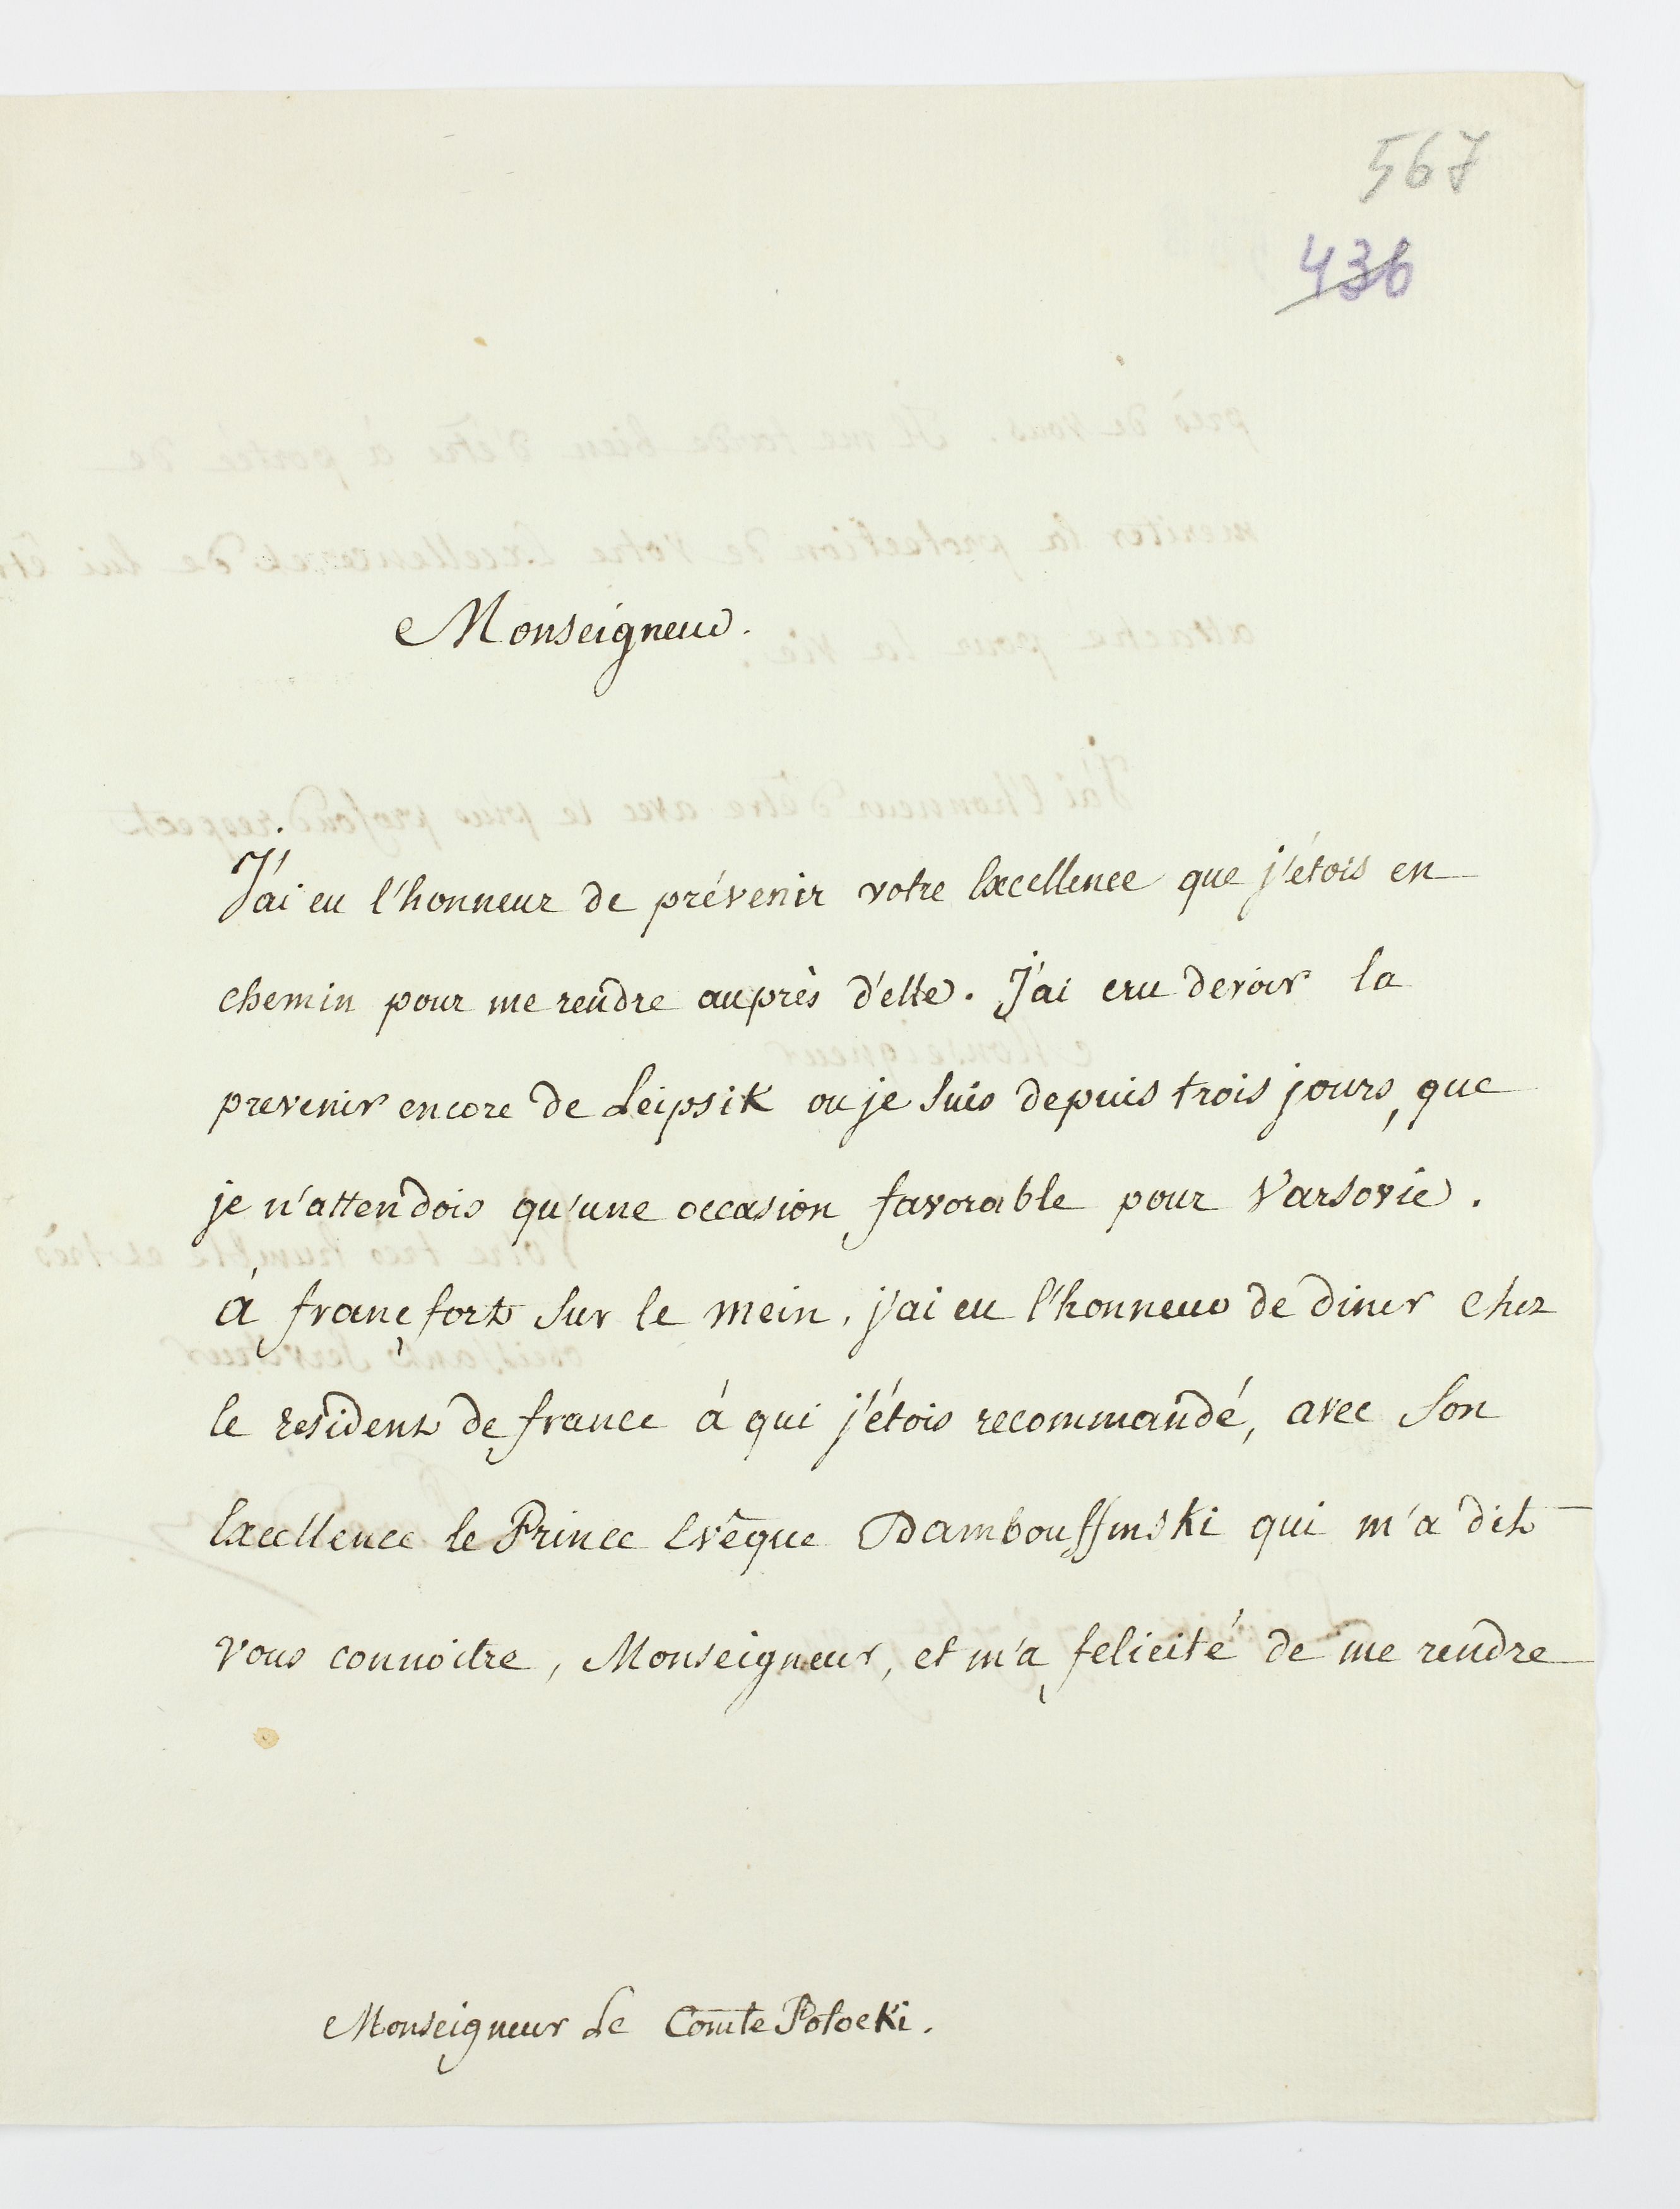 567
436
Monseigneur.
J'ai eu l'honneur de prévenir votre Excellence que j'étois en
chemin pour me rendre auprès d'elle. J'ai cru devoir la
prevenir encore de Leipsik ou je suis depuis trois jours, que
je n'attendois qu'une occasion favorable pour Varsovie.
à francfort sur le mein, j'ai eu l'honneur de diner chez
le resident de france à qui j'étois recommandé, avec son
Excellence le Prince Evêque qui m'a dit
vous connoitre, Monseigneur, et m'a felicité de me rendre
Monseigneur Le Comte Potocki.